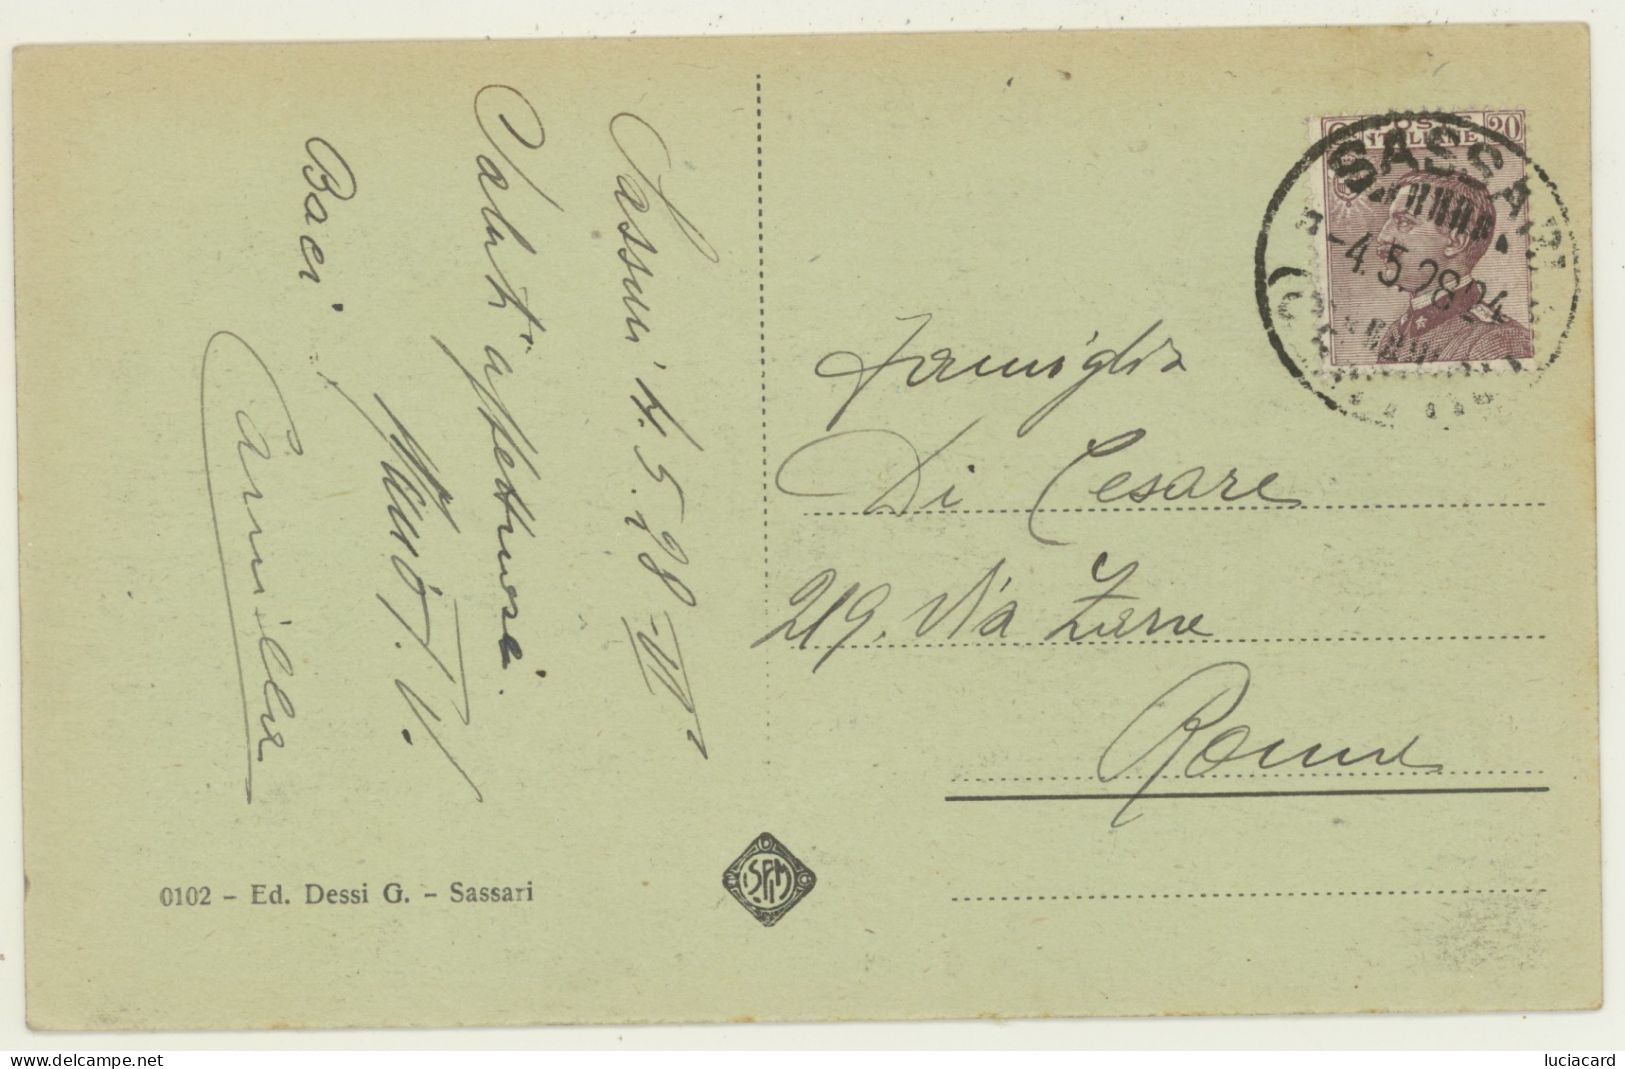 Sassari 4.5.928-VI°
Saluti affettuosi.
Baci
Camilla
Famiglia
Di Cesare
219. Via Zara
Roma
POSTE
ITALIANE
20
SASSARI
-4.5.28 24
SPIM
0102 – Ed. Dessi G. – Sassari
www.delcampe.net
luciacard